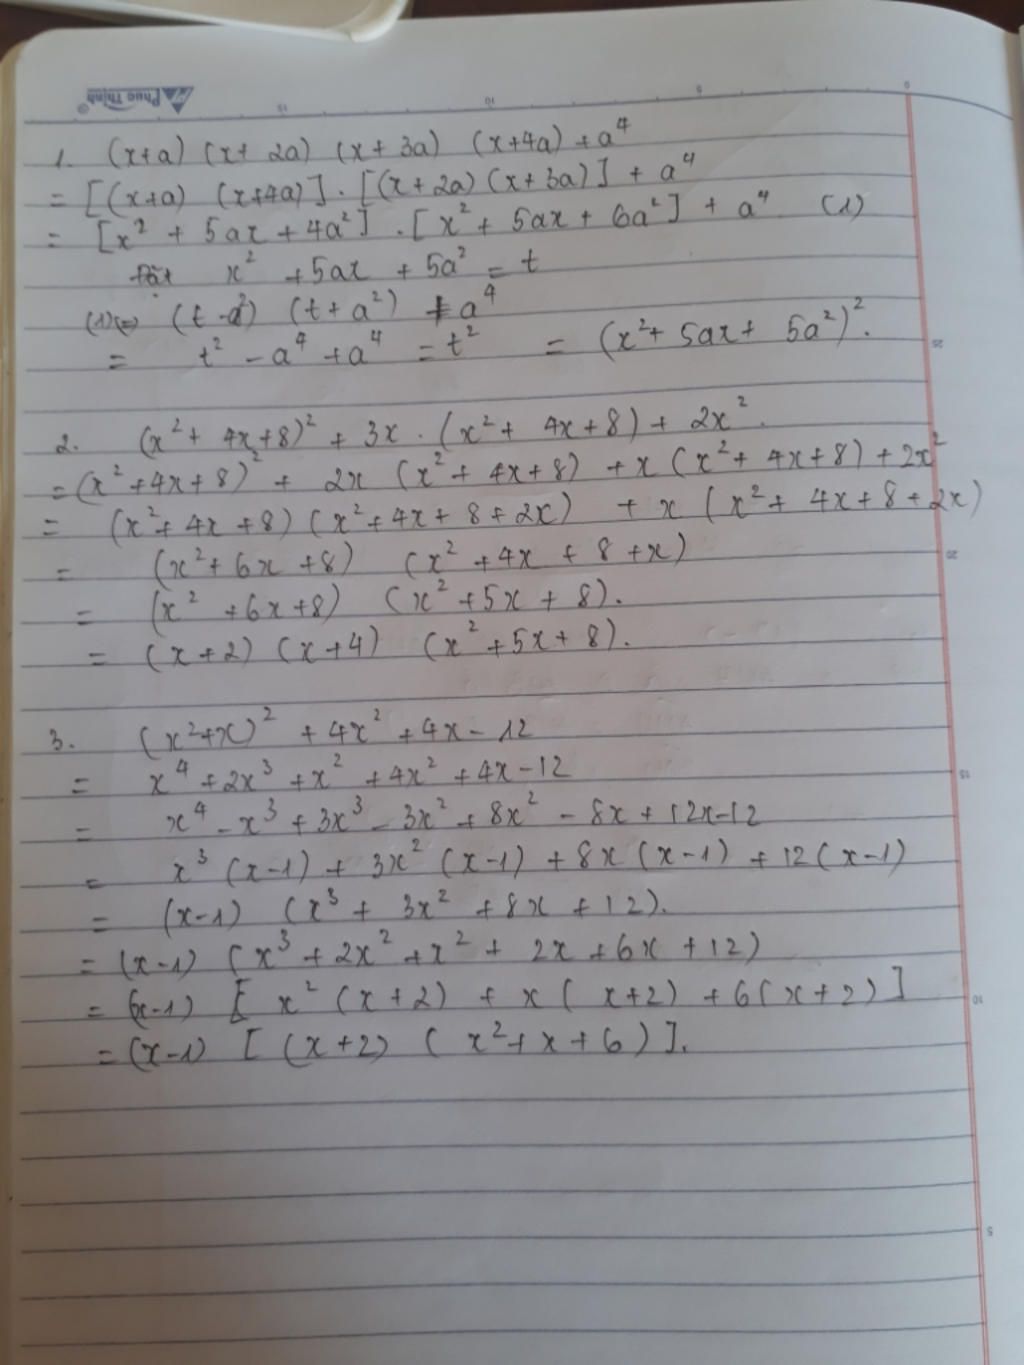 Phúc Thịnh®
15 10 5 0
1. (x+a) (x+ 2a) (x+ 3a) (x+4a) + a⁴
= [(x+a) (x+4a)] . [(x+2a) (x+3a)] + a⁴
= [x² + 5ax + 4a²] . [x² + 5ax + 6a²] + a⁴ (1)
Đặt x² + 5ax + 5a² = t
(1)⇔ (t - a²) (t + a²) + a⁴
= t² - a⁴ + a⁴ = t² = (x² + 5ax + 5a²)².
25
2. (x² + 4x+8)² + 3x . (x² + 4x+8) + 2x².
= (x² +4x+8)² + 2x (x² + 4x+8) + x (x² + 4x+8) + 2x²
= (x²+ 4x +8) (x²+4x+ 8+2x) + x (x² + 4x+8+2x)
= (x²+ 6x +8) (x² +4x + 8 +x)
20
= (x² +6x+8) (x² +5x + 8).
= (x+2) (x+4) (x² +5x+ 8).
3. (x²+x)² + 4x² +4x - 12
= x⁴ +2x³ +x² +4x² +4x-12
15
= x⁴ - x³ + 3x³ - 3x² + 8x² - 8x + 12x-12
= x³ (x-1) + 3x² (x-1) + 8x (x-1) + 12 (x-1)
= (x-1) (x³ + 3x² +8x +12).
= (x-1) (x³ + 2x² +x² + 2x +6x +12)
= (x-1) [ x² (x+2) + x ( x+2) + 6(x+2) ]
10
= (x-1) [ (x+2) ( x²+x+6) ].
5